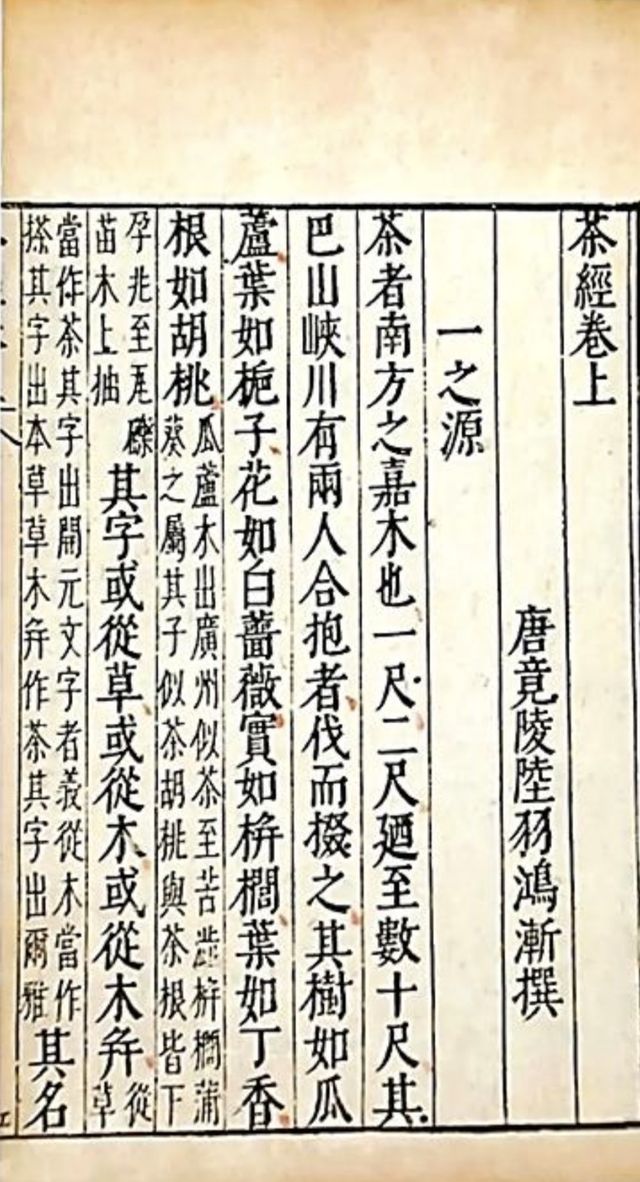 茶經卷上
唐竟陵陸羽鴻漸撰
一之源
茶者南方之嘉木也一尺二尺廼至數十尺其
巴山峽川有兩人合抱者伐而掇之其樹如瓜
蘆葉如梔子花如白薔薇實如栟櫚葉如丁香
根如胡桃
瓜蘆木出廣州似茶至苦澁栟櫚蒲
葵之屬其子似茶胡桃與茶根皆下
孕兆至瓦礫
苗木上抽
其字或從草或從木或從木并
從
草
當作茶其字出開元文字者義從木當作
搽其字出本草草木并作茶其字出爾雅
其名